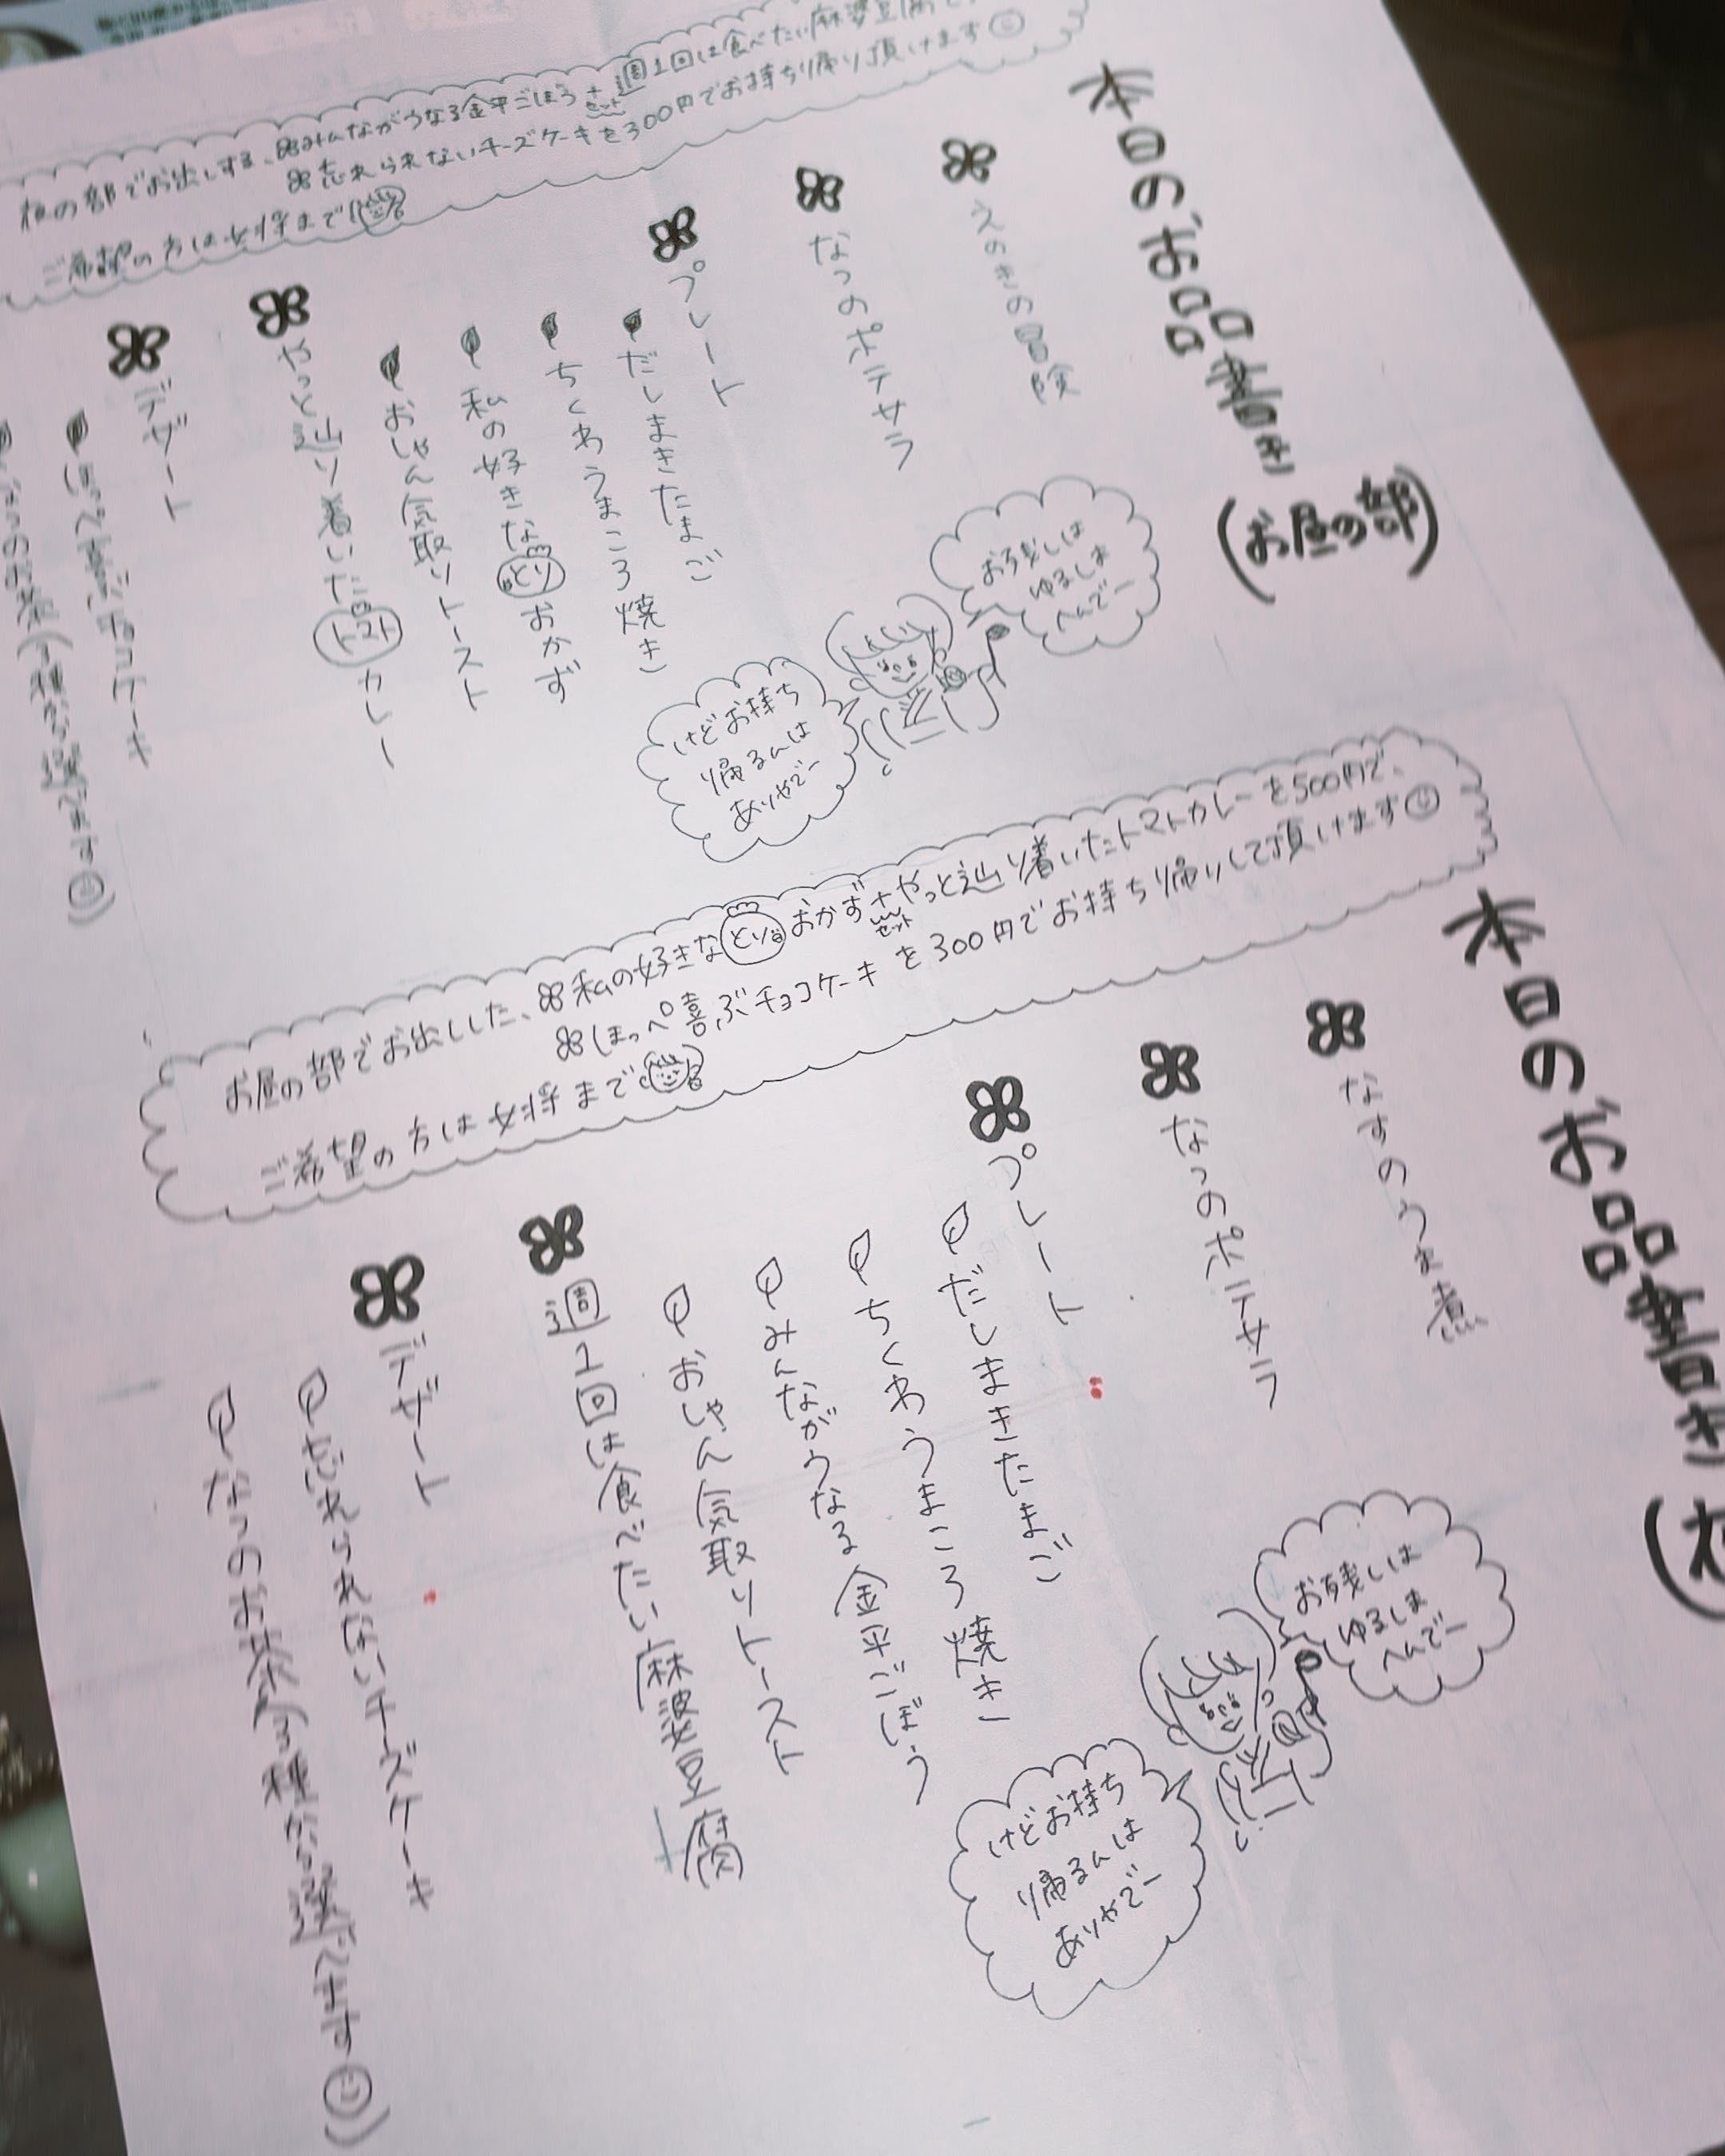 本日のお品書き
(お昼の部)
えのきの冒険
なつのポテサラ
プレート
だしまきたまご
ちくわうまころ焼き
私の好きなとりおかず
おしゃん気取りトースト
やっと辿り着いたトマトカレー
デザート
ほっぺ喜ぶチョコケーキ
なつのお茶(3種から選べます)
お残しは
ゆるしま
へんでー
けどお持ち
帰るんは
ありやでー
夜の部でお出しする、みんながうなる金平ごぼう+セット週1回は食べたい麻婆豆腐
忘れられないチーズケーキを300円でお持ち帰り頂けます
ご希望の方は女将まで!
本日のお品書き
なすのうま煮
なつのポテサラ
プレート
だしまきたまご
ちくわうまころ焼き
みんながうなる金平ごぼう
おしゃん気取りトースト
週1回は食べたい麻婆豆腐
デザート
忘れられないチーズケーキ
なつのお茶(3種から選べます)
お残しは
ゆるしま
へんでー
けどお持ち
帰るんは
ありやでー
お昼の部でお出しした、私の好きなとりおかず+セットやっと辿り着いたトマトカレーを500円で、
ほっぺ喜ぶチョコケーキを300円でお持ち帰りして頂けます
ご希望の方は女将まで